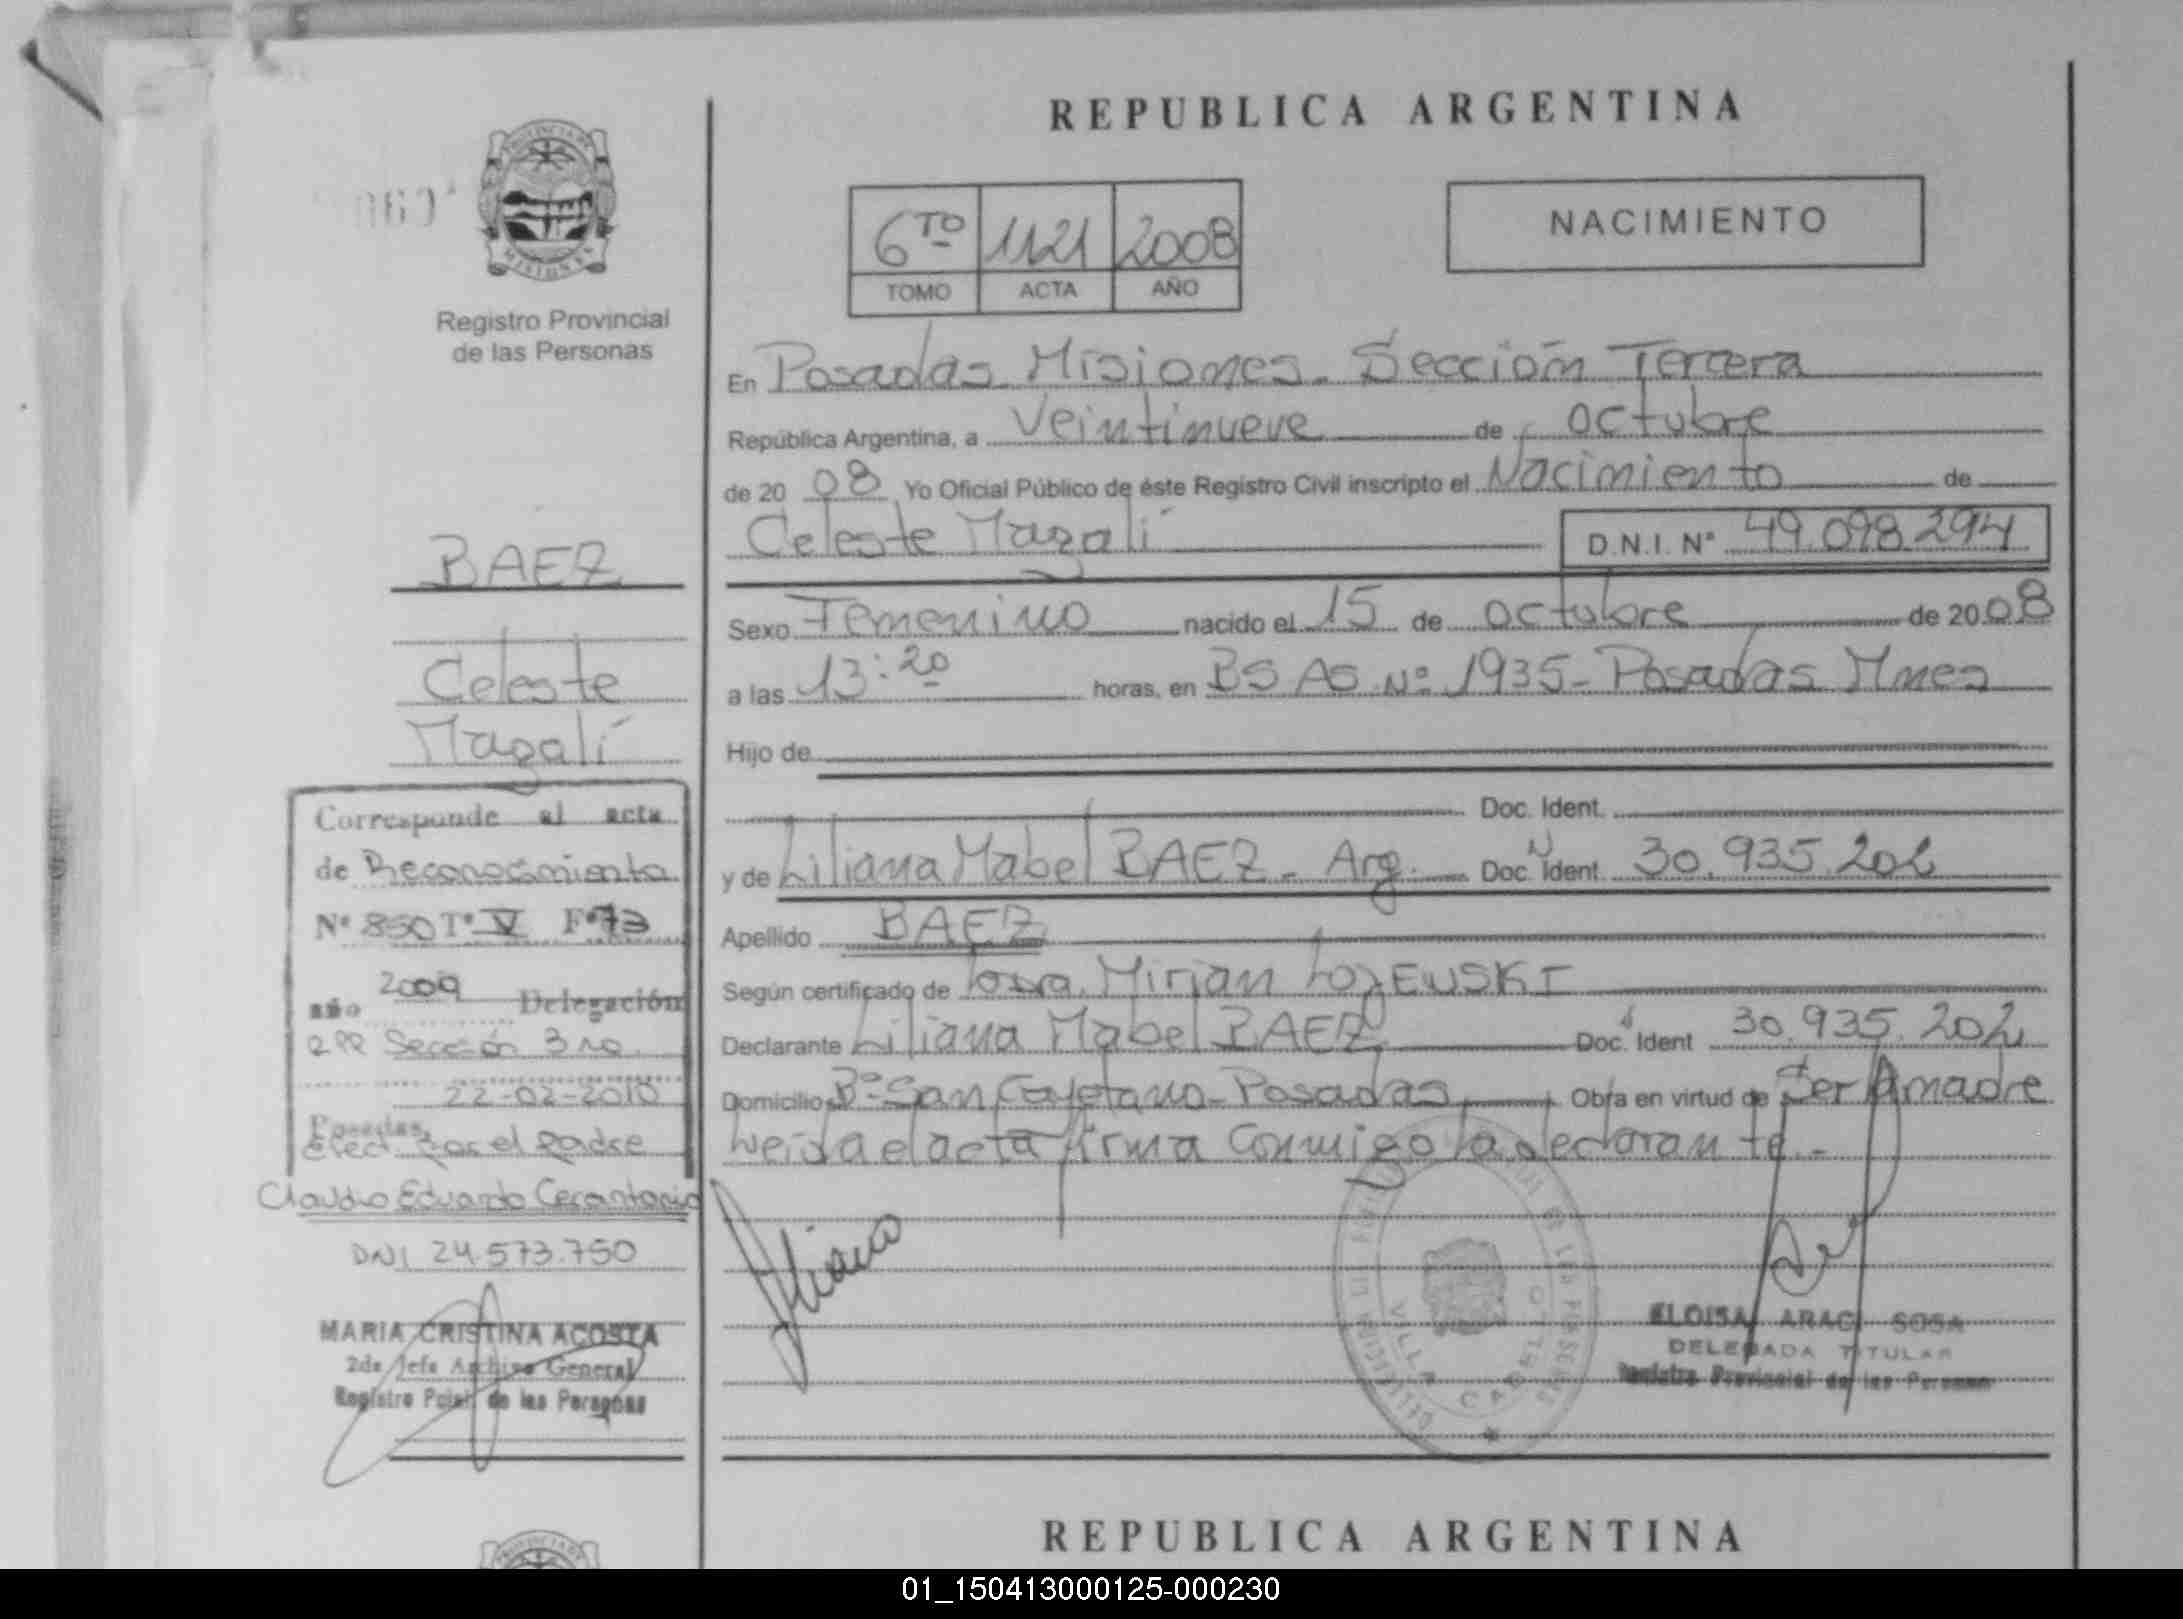 REPUBLICA ARGENTINA
PROVINCIA DE
MISIONES
Registro Provincial
de las Personas
6TO 1121 2008
TOMO ACTA AÑO
NACIMIENTO
En Posadas Misiones - Sección Tercera
República Argentina, a Veintinueve de octubre
de 20 08 Yo Oficial Público de éste Registro Civil inscripto el Nacimiento de
Celeste Magalí D.N.I. Nº 49.098.294
Sexo Femenino nacido el 15 de octubre de 2008
a las 13:20 horas, en BS AS Nº 1935 - Posadas Mnes
Hijo de
Doc. Ident.
y de Liliana Mabel BAEZ - Arg. Doc. Ident. 30.935.202
Apellido BAEZ
Según certificado de Mirian
Declarante Liliana Mabel BAEZ Doc. Ident 30.935.202
Domicilio Bº San Cayetano - Posadas Obra en virtud de Ser la madre
Leída el acta firma conmigo la declarante.-
Liliana
VILLA CABELLO
ELOISA ARACI SOSA
DELEGADA TITULAR
Registro Provincial de las Personas
BAEZ
Celeste
Magalí
Corresponde al acta
de Reconocimiento
Nº 850 Tº V Fº 73
año 2009 Delegación
RPP Sección 3ra.
22-02-2010
Posadas,
Efect. por el padre
Claudio Eduardo Cerantonio
DNI 24.573.750
MARIA CRISTINA ACOSTA
2da Jefe Archivo General
Registro Pcial. de las Personas
REPUBLICA ARGENTINA
01_150413000125-000230